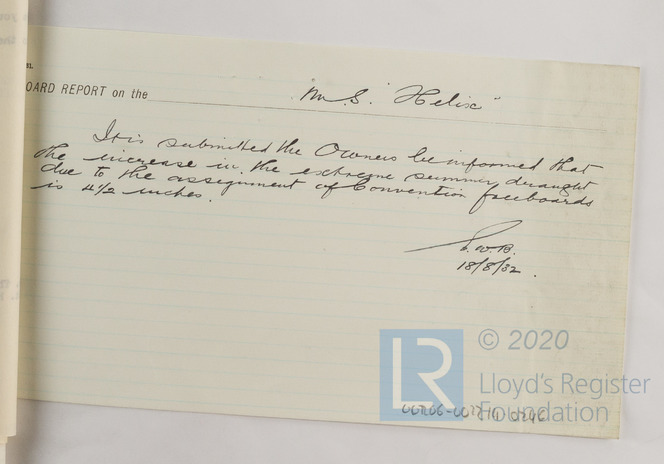 OARD REPORT on the M S "Helix"
It is submitted the Owners be informed that
the increase in the extreme summer draught
due to the assignment of Convention freeboards
is 4 1/2 inches.
18/8/32.
© 2020
LR
Lloyd's Register
Foundation